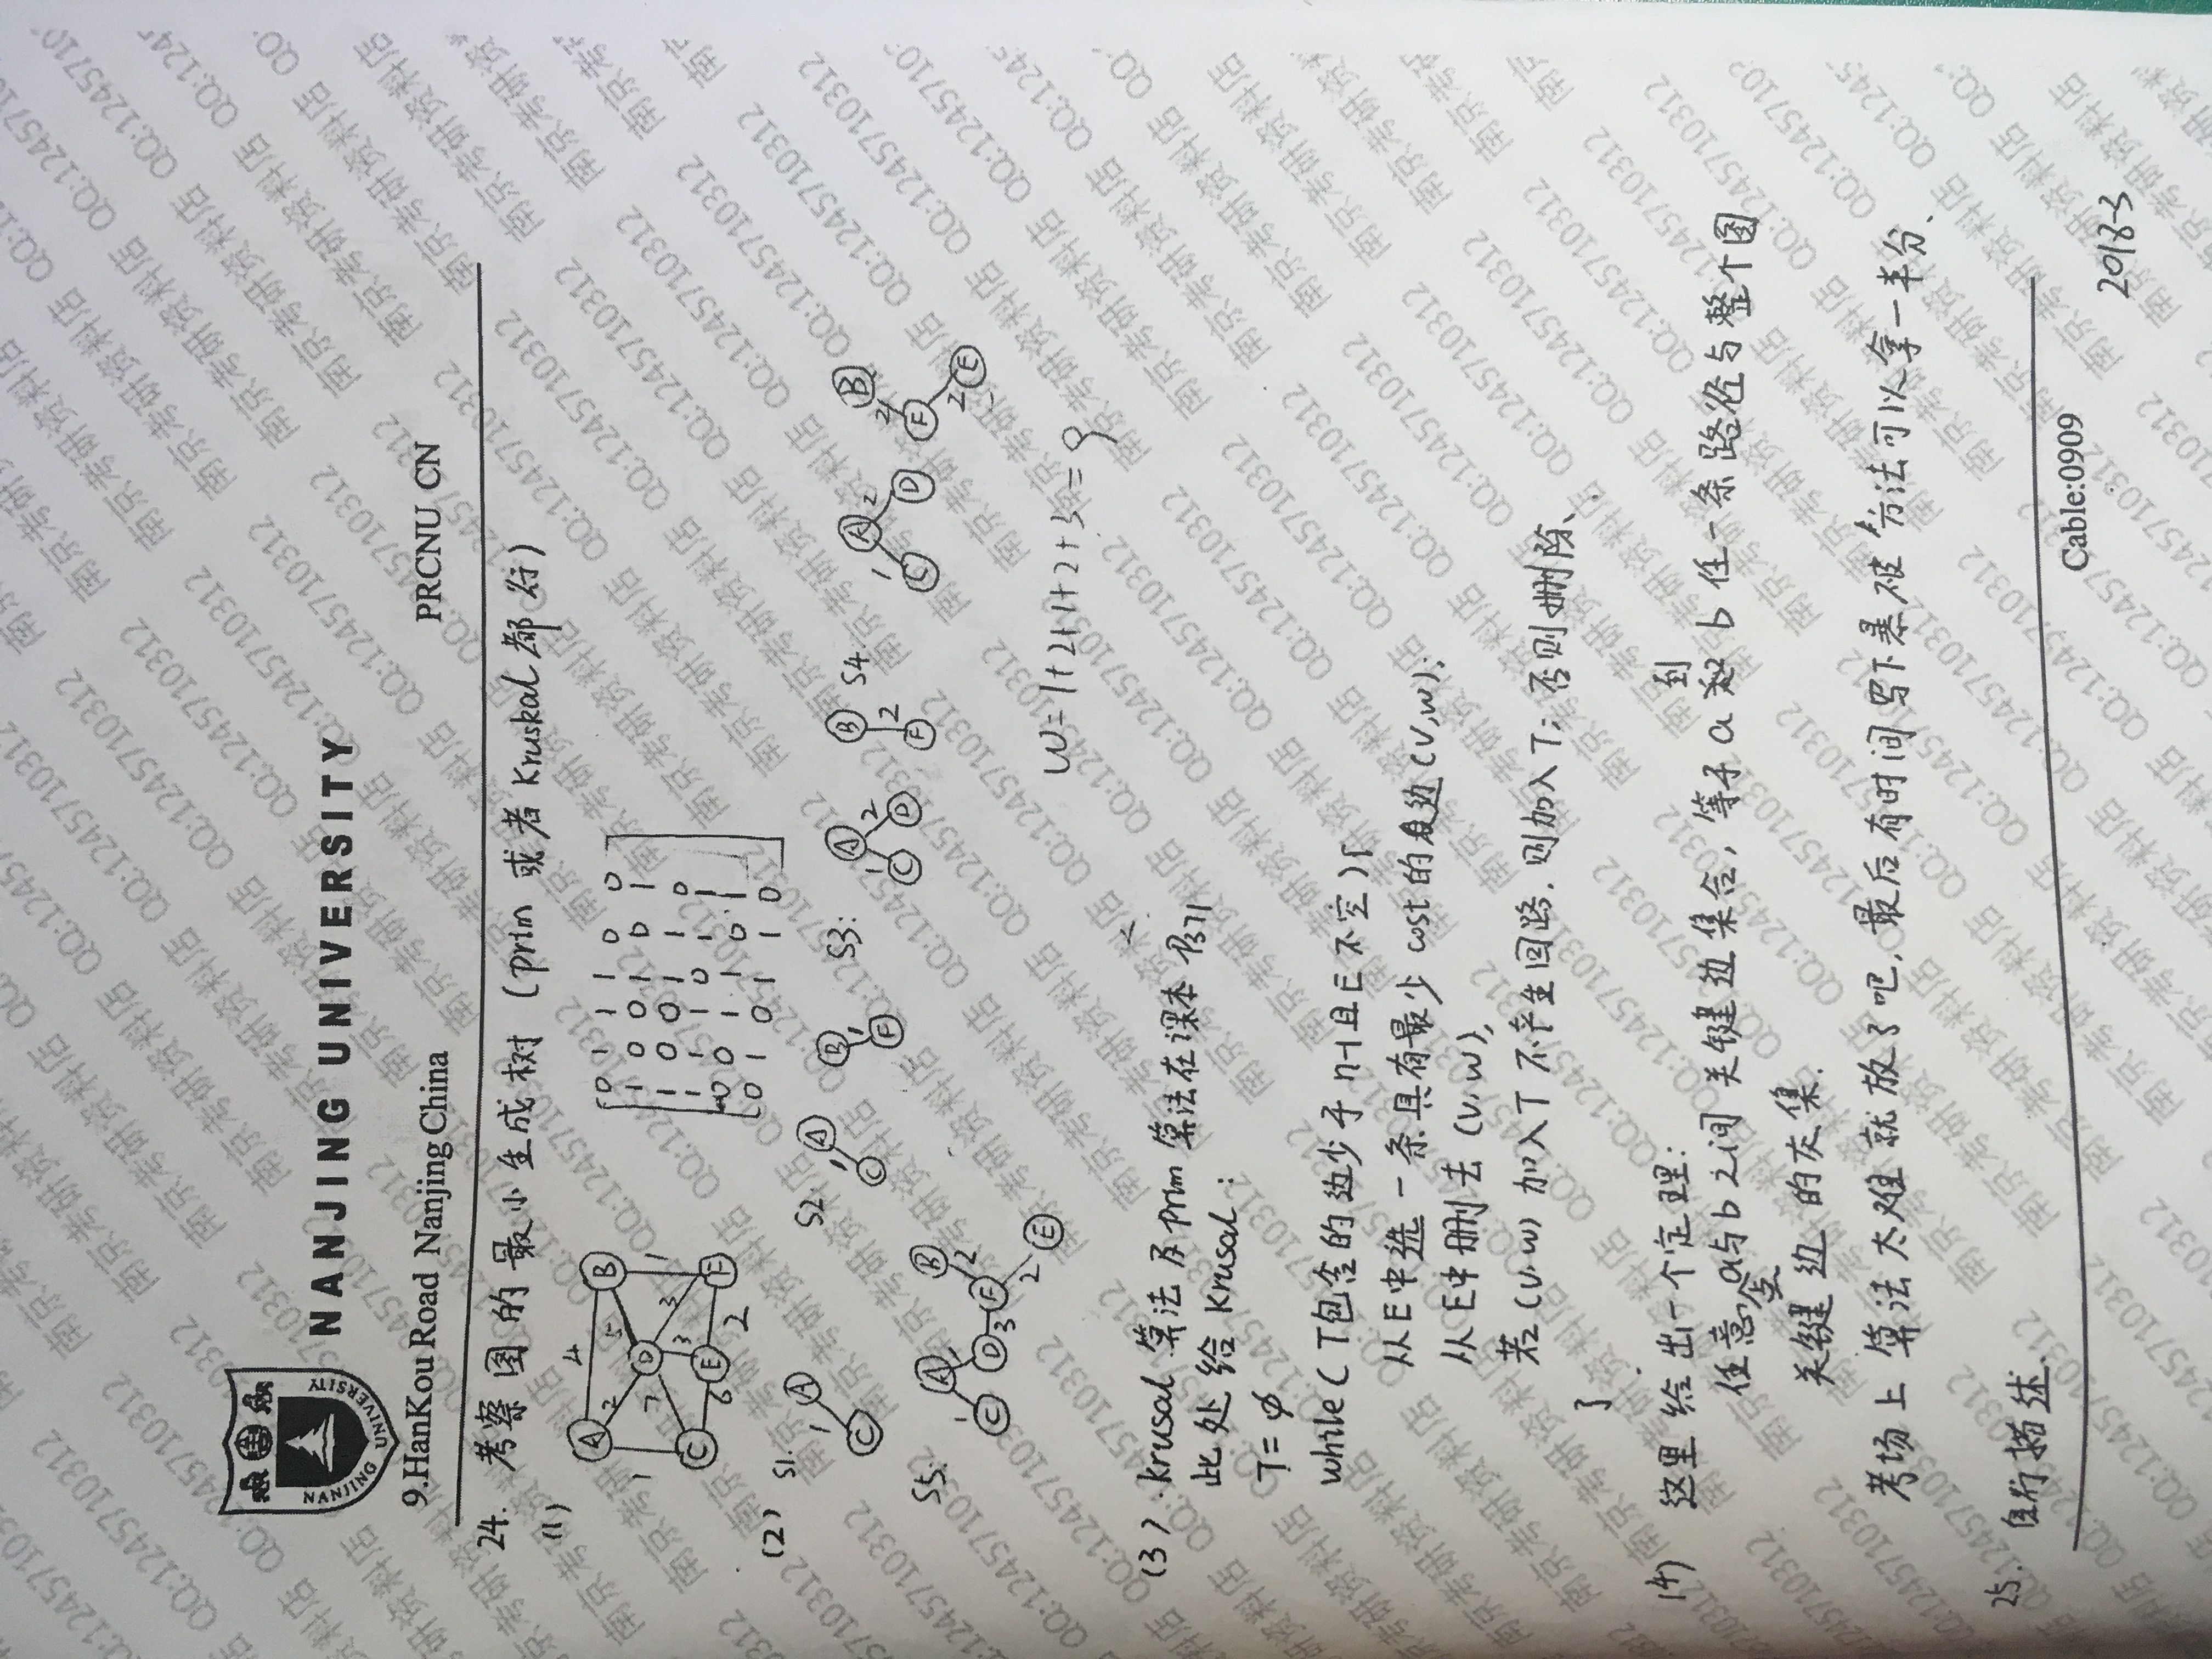 NANJING UNIVERSITY
NANJING UNIVERSITY
9.HanKou Road Nanjing China PRCNU CN
24. 考察图的最小生成树 (prim 或者 Kruskal 都行)
(1)
A 4 B
2 5
1 D 1
7 3
C 3
E F
6 2
0 1 1 1 0 0
1 0 0 1 0 1
1 0 0 1 1 0
1 1 1 0 1 1
0 0 1 1 0 1
0 1 0 1 1 0
(2) S1. A 1 C
S2. A 1 C B 1 F
S3: A 1 2 C D B 2 F
S4. A 1 2 C D B 2 F 2 E
S5: A 1 C D 3 F B 2 2 E
W=1+2+1+2+3=9
(3) krusal 算法及prim 算法在课本 P371
此处给 Krusal :
T=∅
while ( T包含的边少于 n-1且E 不空){
从E中选一条具有最少 cost 的边(v,w);
从E中删去 (v,w),
若(v,w) 加入T 不产生回路, 则加入T; 否则删除、
}
(4) 这里给出一个定理:
任意点a与b之间关键边集合, 等于a到b 任一条路径与整个图
关键边的交集.
考场上算法太难就放了吧, 最后有时间写下暴破方法可以拿一半分、
25. 自行描述.
Cable:0909
2018-3
南京考研资料店 QQ:1245710312